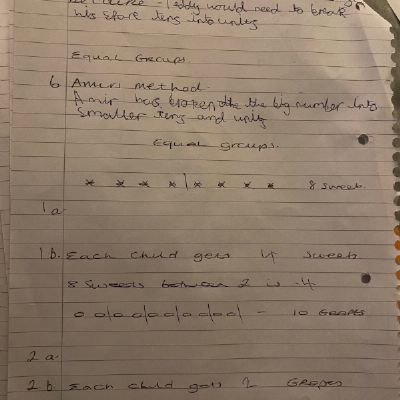 Teddy would need to break
his spare tens into units
Equal Groups
6 Amirs method.
Amir has broken the the big number into
smaller tens and units
Equal groups.
* * * * | * * * * 8 sweets.
1a
1b. Each child gets 4 sweets
8 sweets between 2 is 4
o o|o o|o o|o o|o o| - 10 Grapes
2a
2b Each child gets 2 Grapes